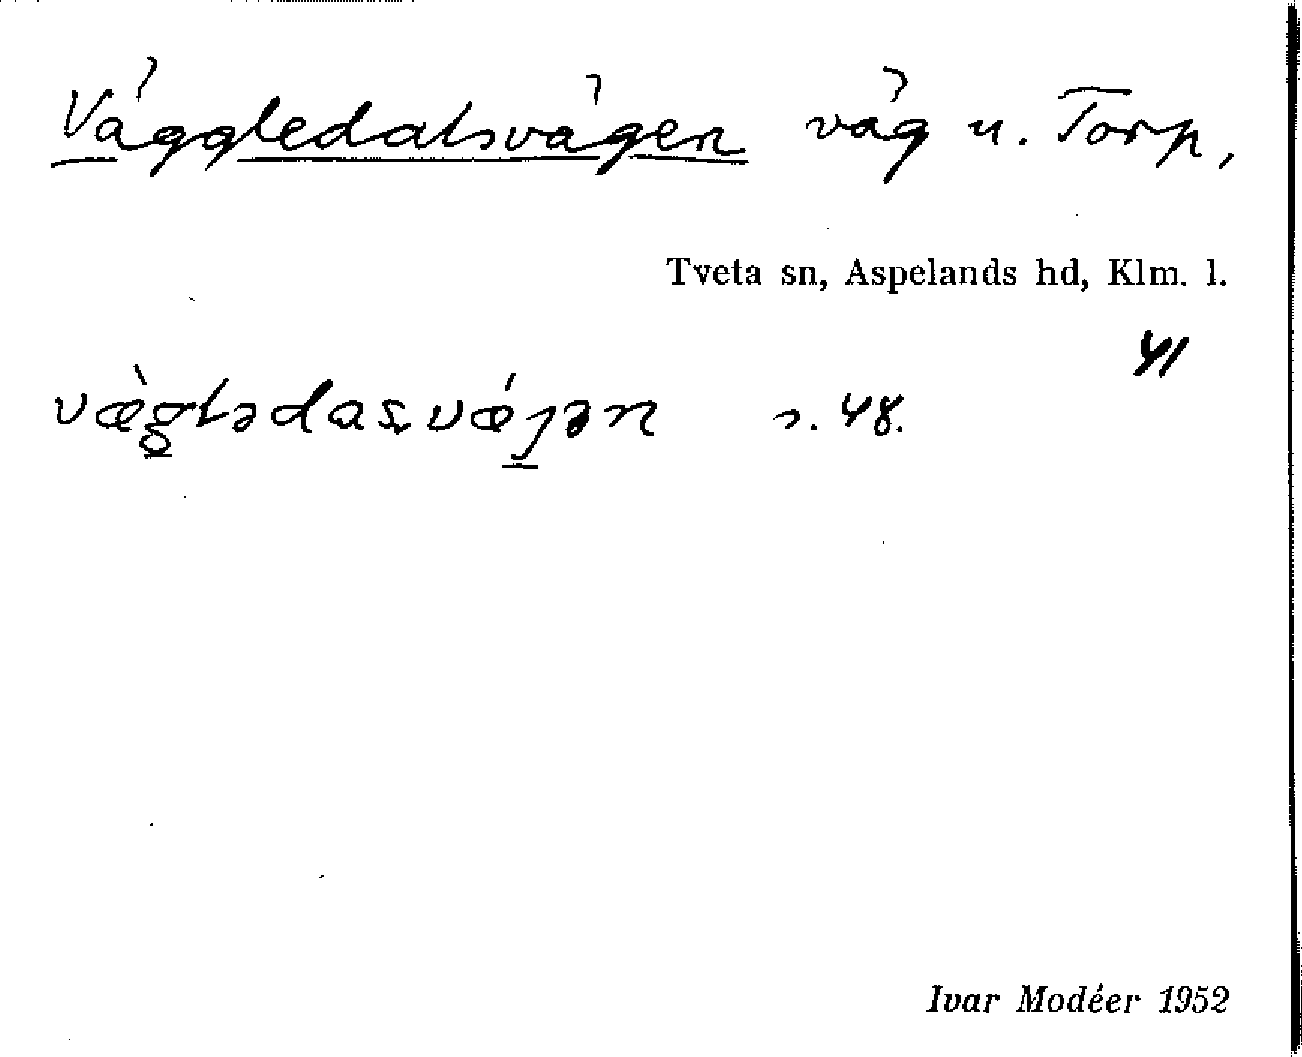 Väggledalsvägen väg u. Torp,
Tveta sn, Aspelands hd, Klm. l.
41
væ̀gləda​s̨vǽjən s. 48.
Ivar Modéer 1952